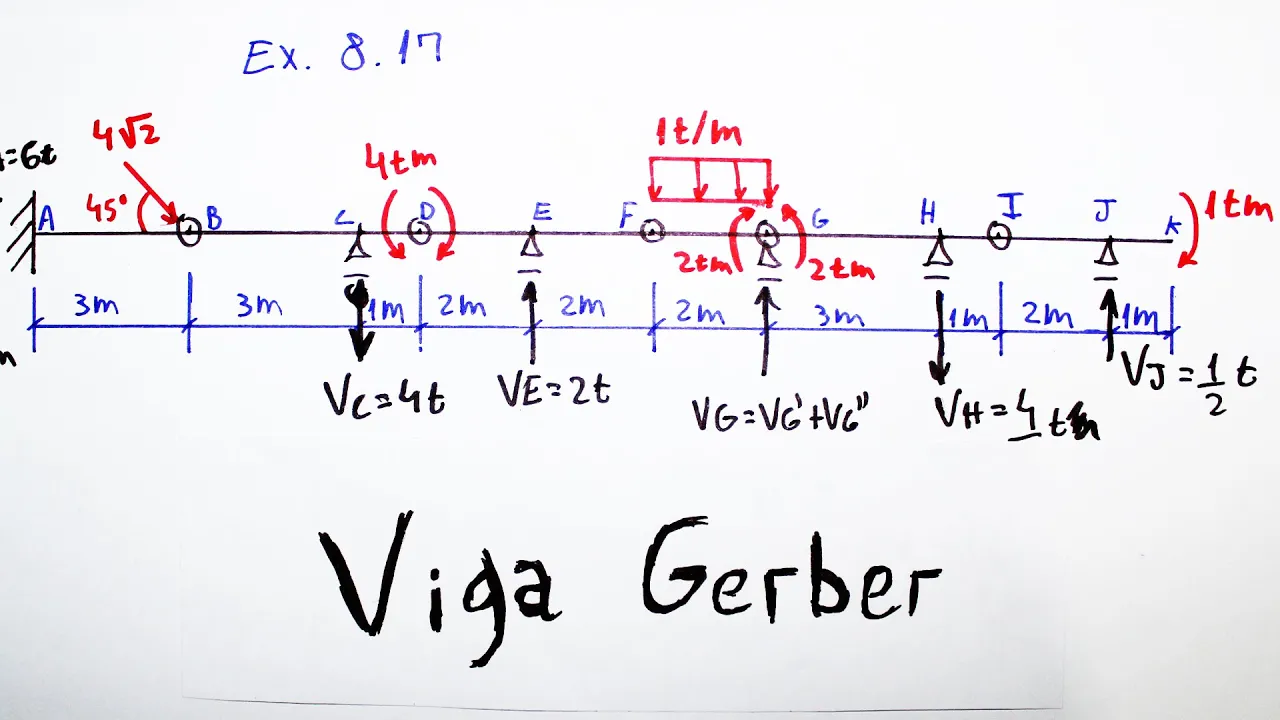 Ex. 8.17
4√2
=6t
45°
4tm
1t/m
1tm
A B C D E F G H I J K
2tm 2tm
3m 3m 1m 2m 2m 2m 3m 1m 2m 1m
m
VC=4t
VE=2t
VG=VG'+VG''
VH=4 t
VJ=1/2 t
Viga Gerber